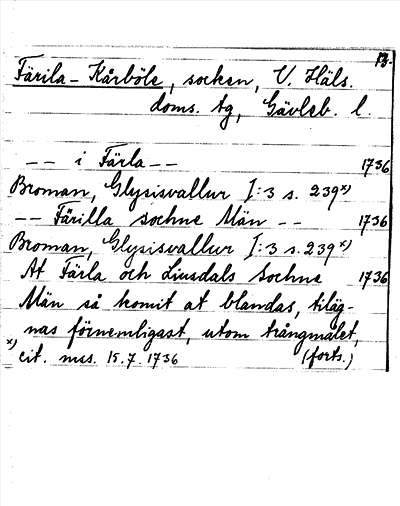 12.
Färila-Kårböle, socken, V. Häls.
doms. tg, Gävleb. l.
-- i Färla -- 1736
Broman, Glysisvallur I:3 s. 239 x)
-- Färilla sochne Män -- 1736
Broman, Glysisvallur I:3 s. 239 x)
At Färla och Liusdals Sochne 1736
Män så komit at blandas, tiläg-
nas förnemligast, utom trångmålet,
x) cit. mss. 15.7.1736 (forts.)